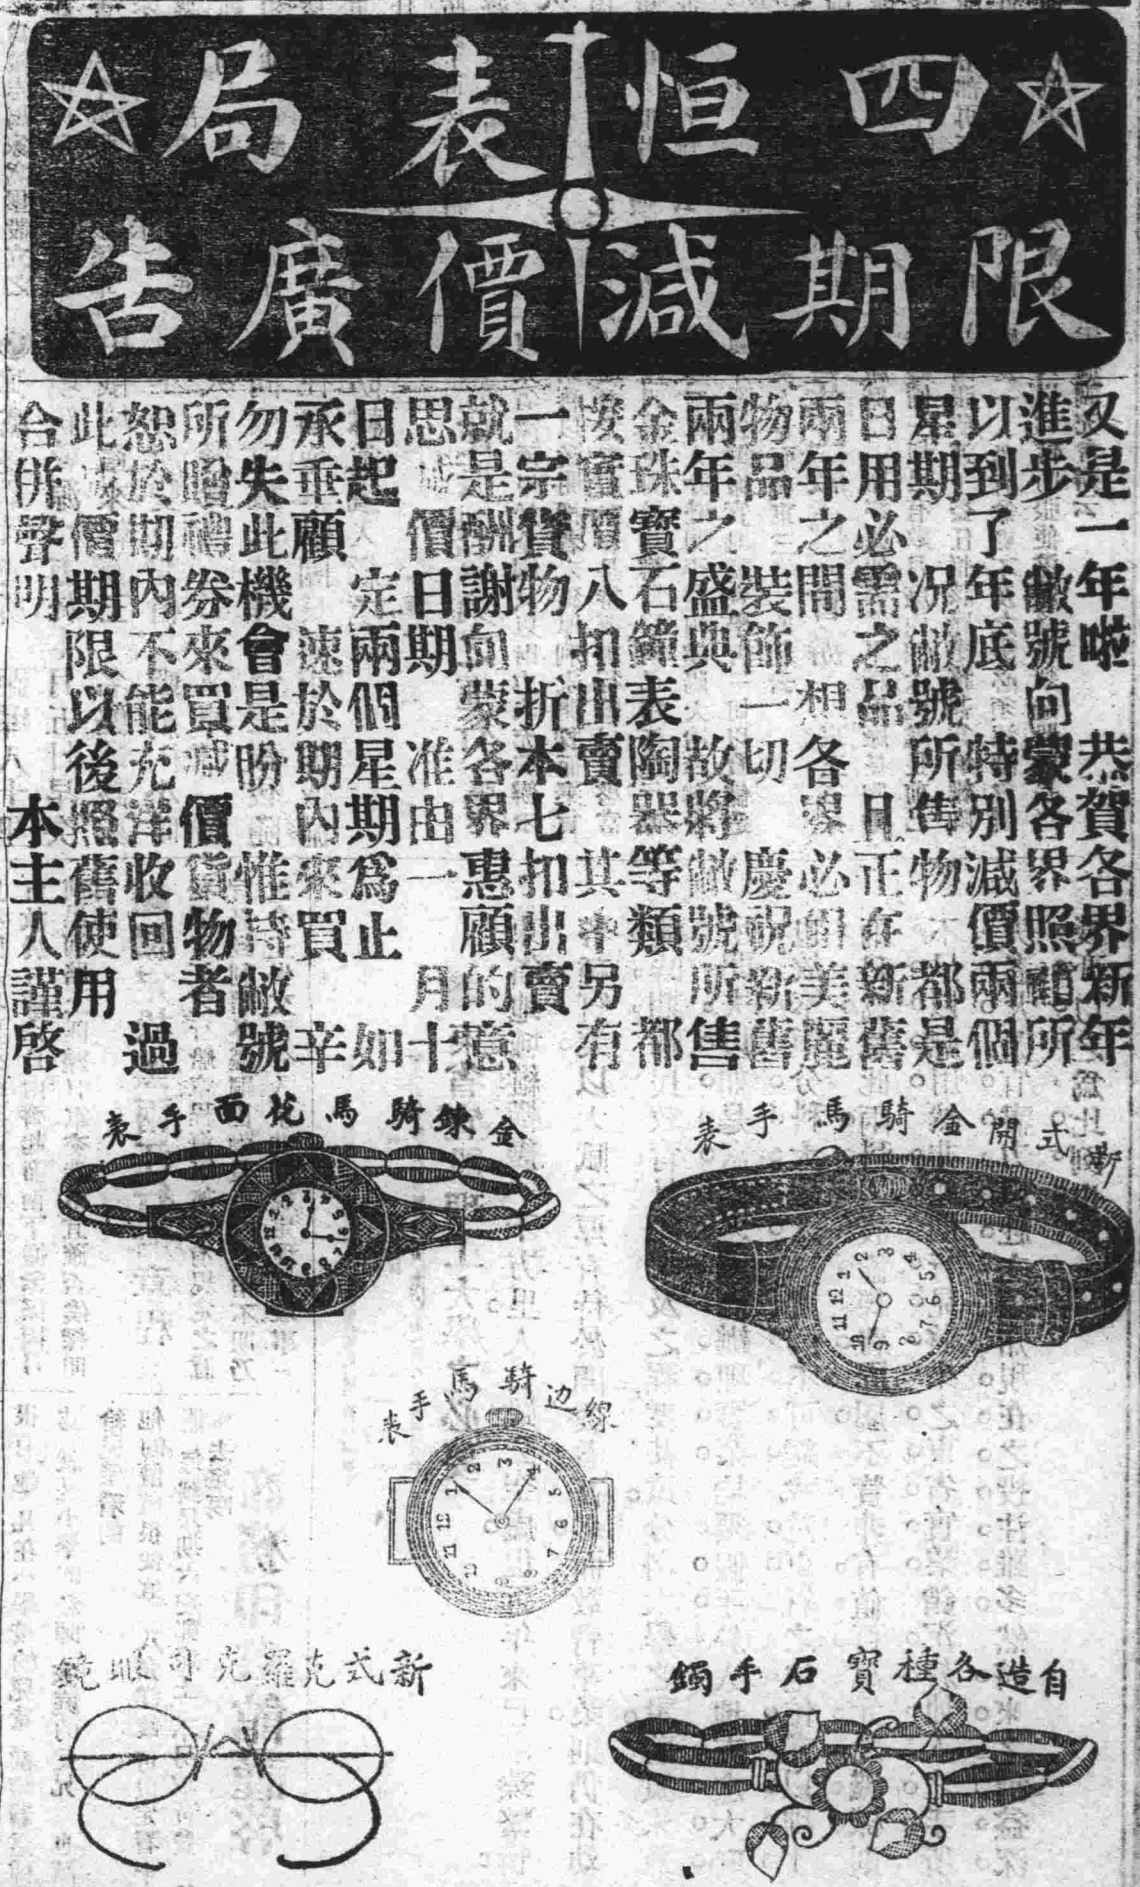 四恒表局
限期減價廣告
又是一年啦 恭賀各界新年
進步 敝號向蒙各界照顧所
以到了年底 特別減價兩個
星期 况敝號所售物 都是
日用必需之品 且正在新舊
兩年之間 想各界必備美麗
物品 裝飾一切 慶祝新舊
兩年之盛典 故將敝號所售
金珠寶石鐘表陶器等類 都
按實價八扣出賣 其中另有
一宗貨物 折本七扣出賣
就是酬謝向蒙各界惠顧的意
思 價日期 准由一月十
日起 定兩個星期為止 如
承垂顧 速於期內來買 幸
勿失此機會是盼 惟持敝號
所贈禮券來買減價貨物者
恕於期內不能充洋收回 過
此減價期限以後照舊使用
合併聲明 本主人謹啓
新式開金騎馬手表
金鍊騎馬花面手表
線边騎馬手表
自造各種寶石手鐲
新式克羅克司眼鏡